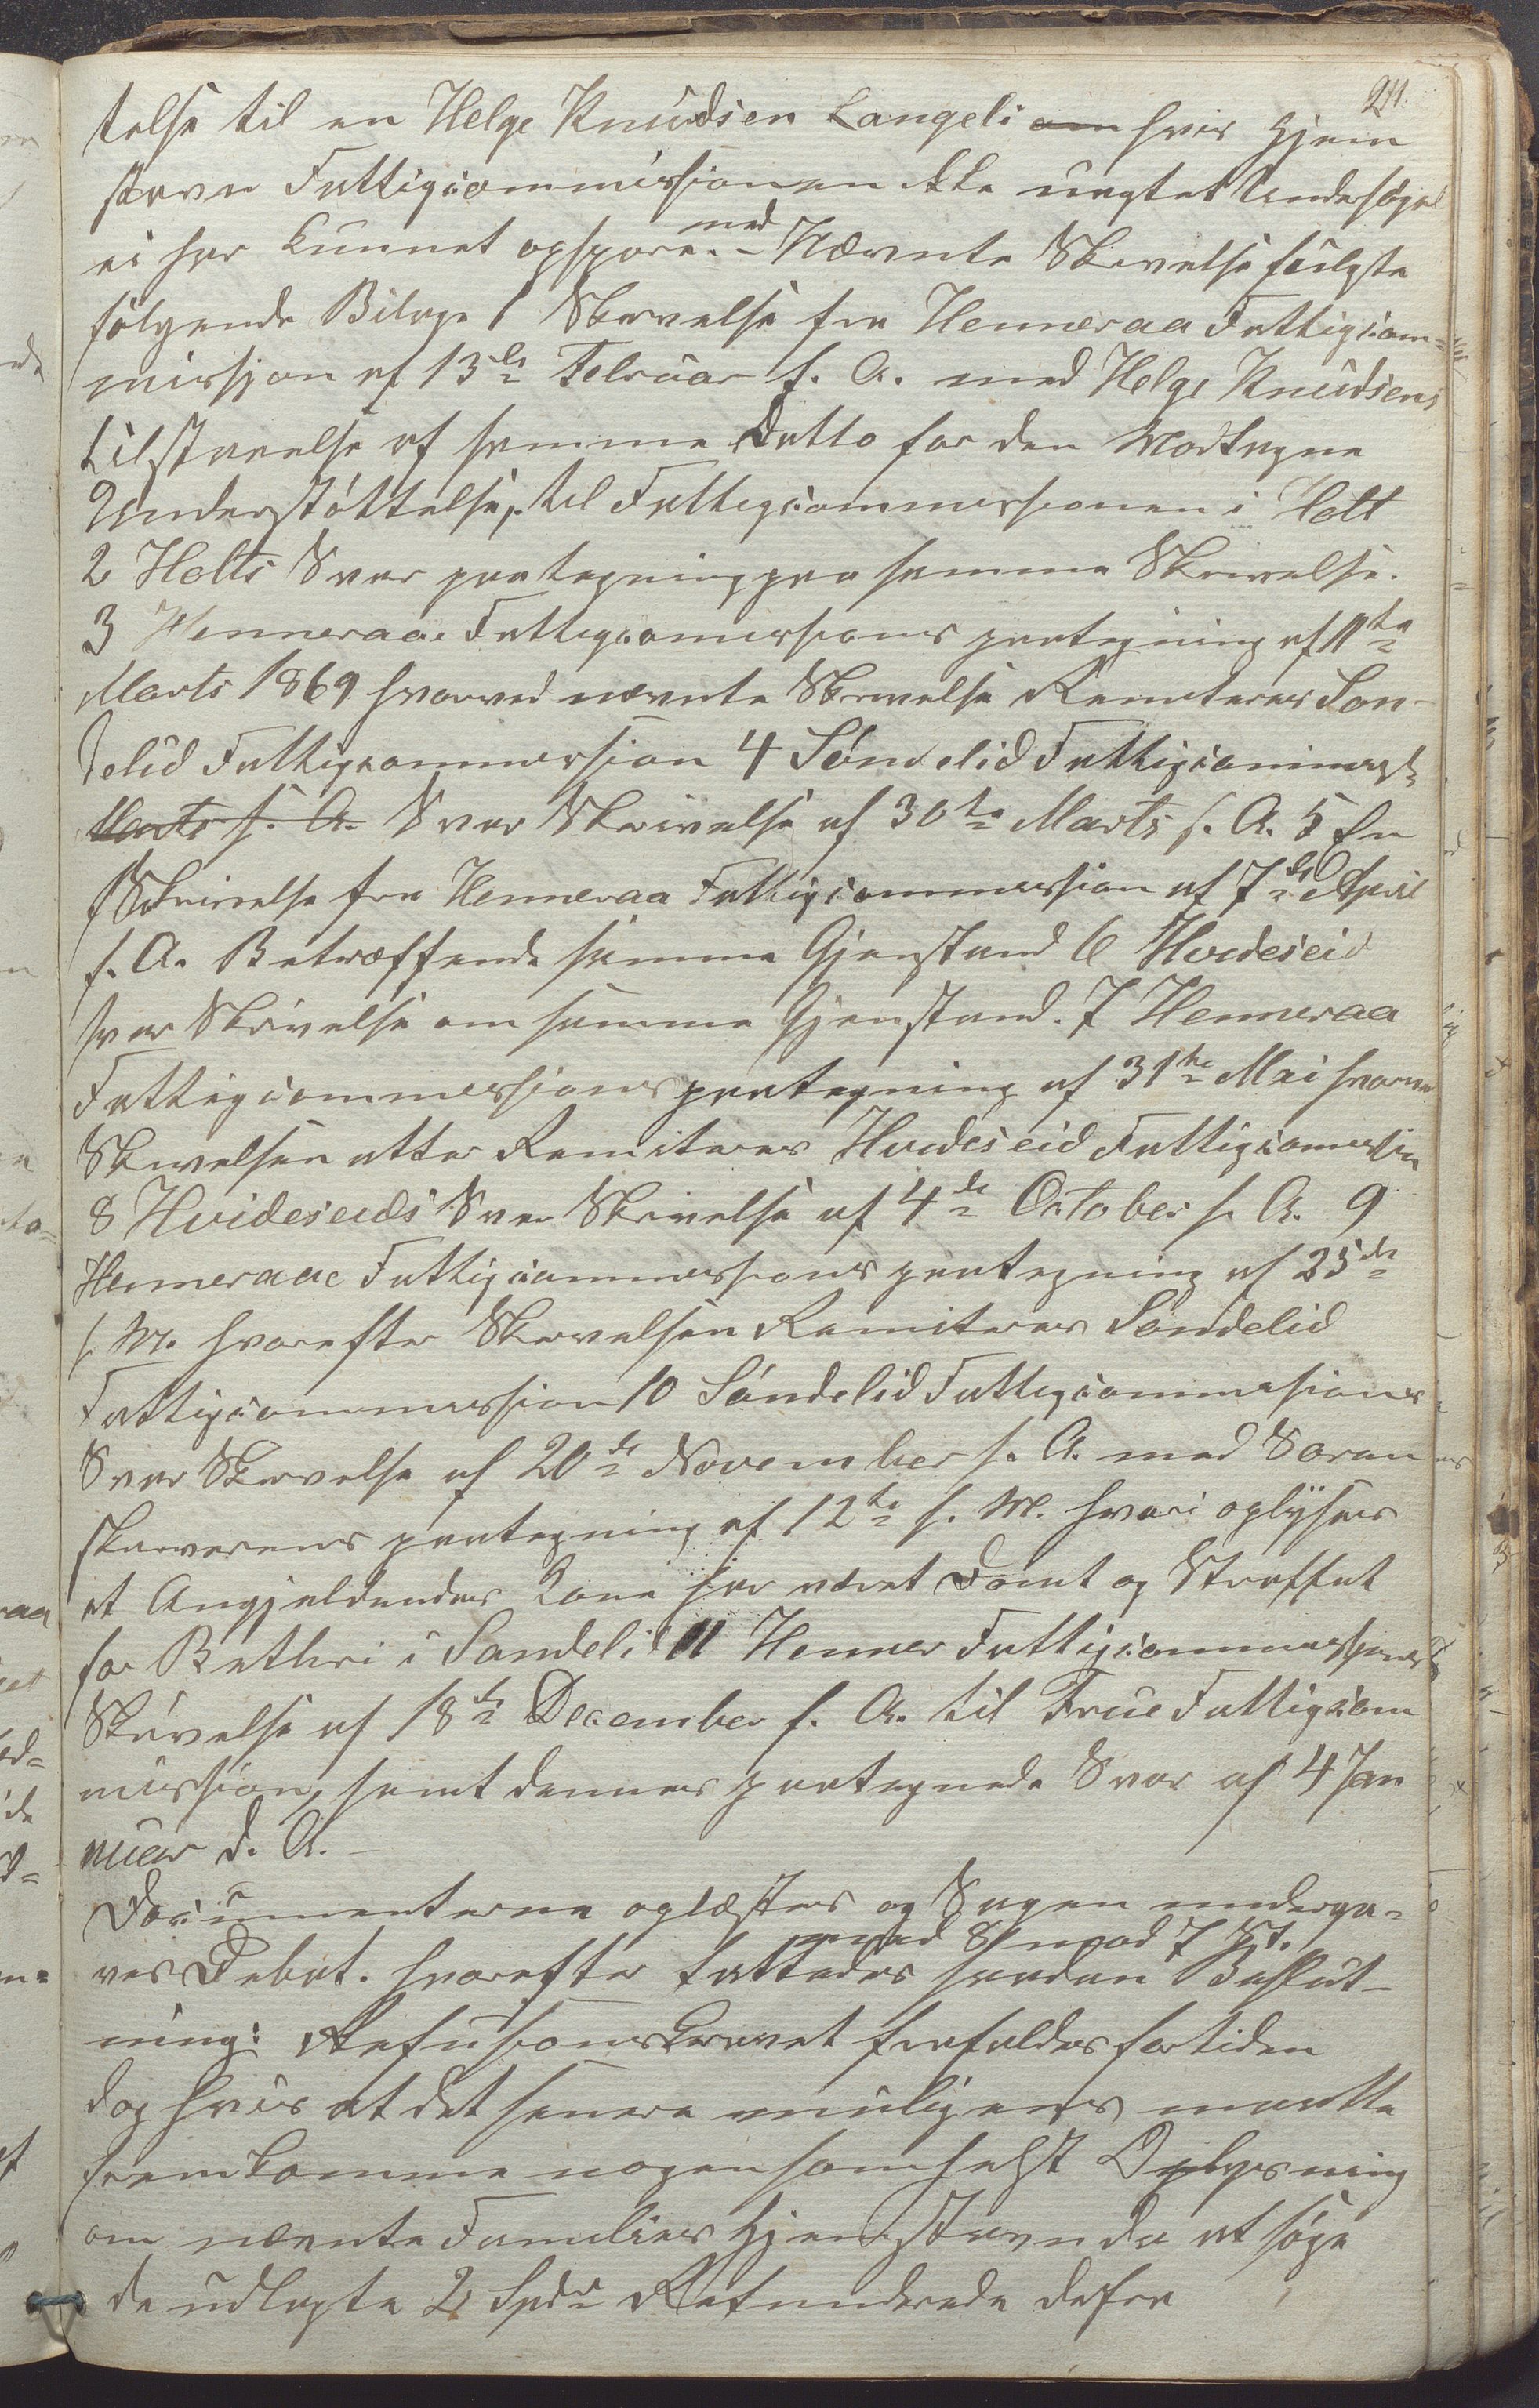 211.
telse til en Helge Knudsen Langeli om hvis Hjem
stavn Fattigcommissionen ikke uagtet Undersøgel
ei har kunnet opspore. – med Nævnte Skrivelse fulgte
følgende Bilage 1 Skrivelse fra Henneraa Fattigcom=
mission af 13de Februar f. A. med Helge Knudsens
tilstaaelse af samme Datto for den Modtagne
Understøttelse, til Fattigcommissionen i Holt
2 Holts Svar paategning paa samme Skrivelse.
3 Henneraa Fattigcomissions paategning af 11te
Marts 1869 hvorved nævnte Skrivelse Remiteres Søn-
delid Fattigcommission 4 Søndelid Fattigcommiss
Marts f. A. Svar Skrivelse af 30te Marts f. A. 5 En
Skrivelse fra Henneraa Fattigcommission af 7de April
f. A. Betræffende samme Gjenstand 6 Hvideseid
svar Skrivelse om samme Gjenstand. 7 Henneraa
Fattigcommissions paategning af 31te Mai hvorved
Skrivelsen atter Remiteres Hvideseid Fattigcommission
8 Hvideseids Svar Skrivelse af 4de October f. A. 9
Henneraa Fattigcommissions paategning af 25de
s. M. hvorefter Skrivelsen Remiteres Søndelid
Fattigcommission 10 Søndelid Fattigcommissions
Svar Skrivelse af 20de November f. A. med Soren
skriverens paategning af 12te s. M. hvori oplyses
at Angjeldendes Kone har været Dømt og Straffet
for Betleri i Søndelid 11 Henner Fattigcommissions
Skrivelse af 18de December f. A. til True Fattigcom
mission, samt dennes paategnede Svar af 4 Jan
nuar d. A. –
Documenterne oplæstes og Sagen underga=
ves Debat. hvorefter fattedes saadan Beslut-
med 8 mod 7 St.
ning: Refusionskravet frafaldes fortiden
dog hvis at det senere muligens maatte
fremkomme nogensomhelst Oplysning
om nævnte Families Hjemstavn da at søge
de udlagte 2 Spd Refunderede derfra